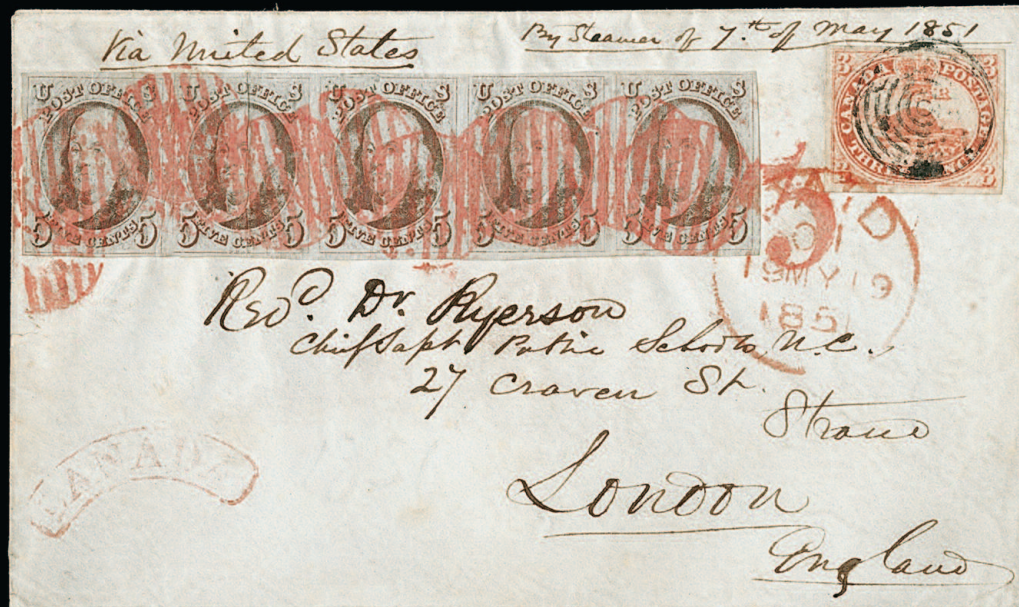 Via United States
By Steamer of 7th of May 1851
U S
POST OFFICE
5 FIVE CENTS 5
U S
POST OFFICE
5 FIVE CENTS 5
U S
POST OFFICE
5 FIVE CENTS 5
U S
POST OFFICE
5 FIVE CENTS 5
U S
POST OFFICE
5 FIVE CENTS 5
3 CANADA POSTAGE 3
3 THREE PENCE 3
PAID
19MY19
1851
Revd. Dr. Ryerson
Chief Supt. Public Schools U.C.,
27 Craven St.
Strand
London
England
CANADA